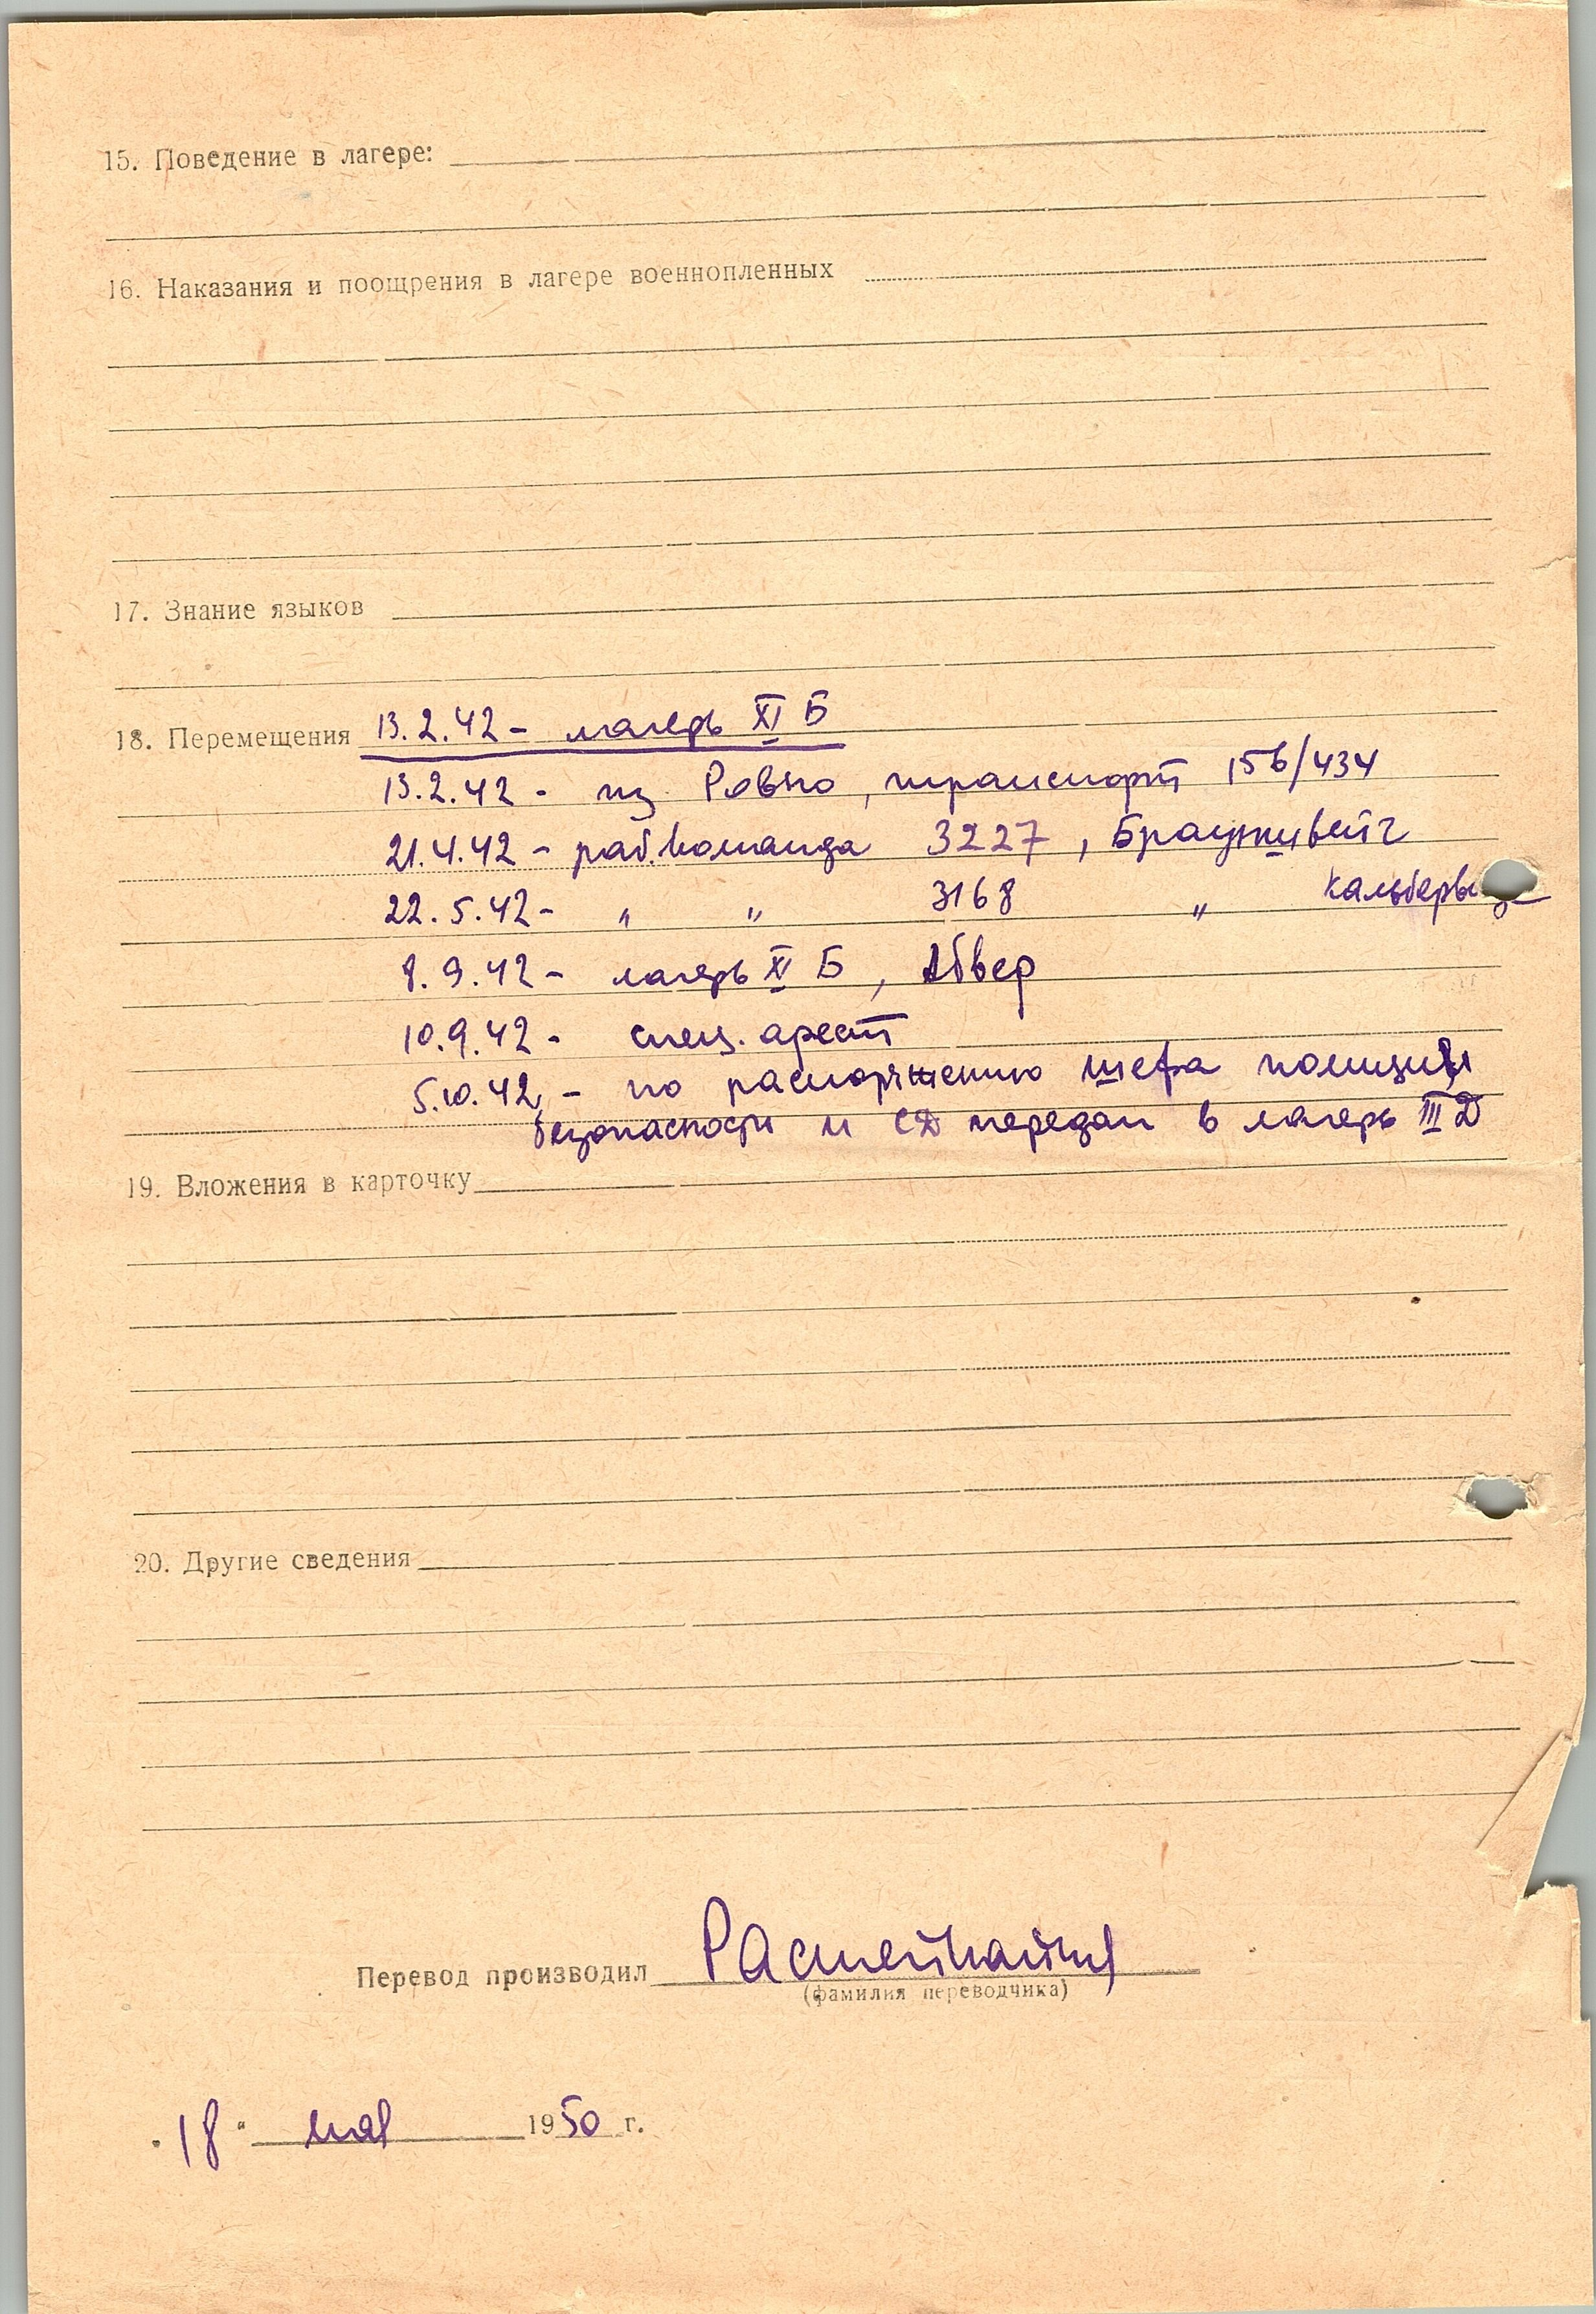 15. Поведение в лагере:
16. Наказания и поощрения в лагере военнопленных
17. Знание языков
18. Перемещения 13.2.42 - лагерь XI Б
13.2.42 - из Ровно, транспорт 156/434
21.4.42 - раб.команда 3227, Брауншвейг
22.5.42 - " " 3168 "
8.9.42 - лагерь XI Б, Абвер
10.9.42 - спец. арест
5.10.42 - по распоряжению шефа полиции
безопасности и СД передан в лагерь III Д
19. Вложения в карточку
20. Другие сведения
Перевод производил
(фамилия переводчика)
"18" мая 1950 г.